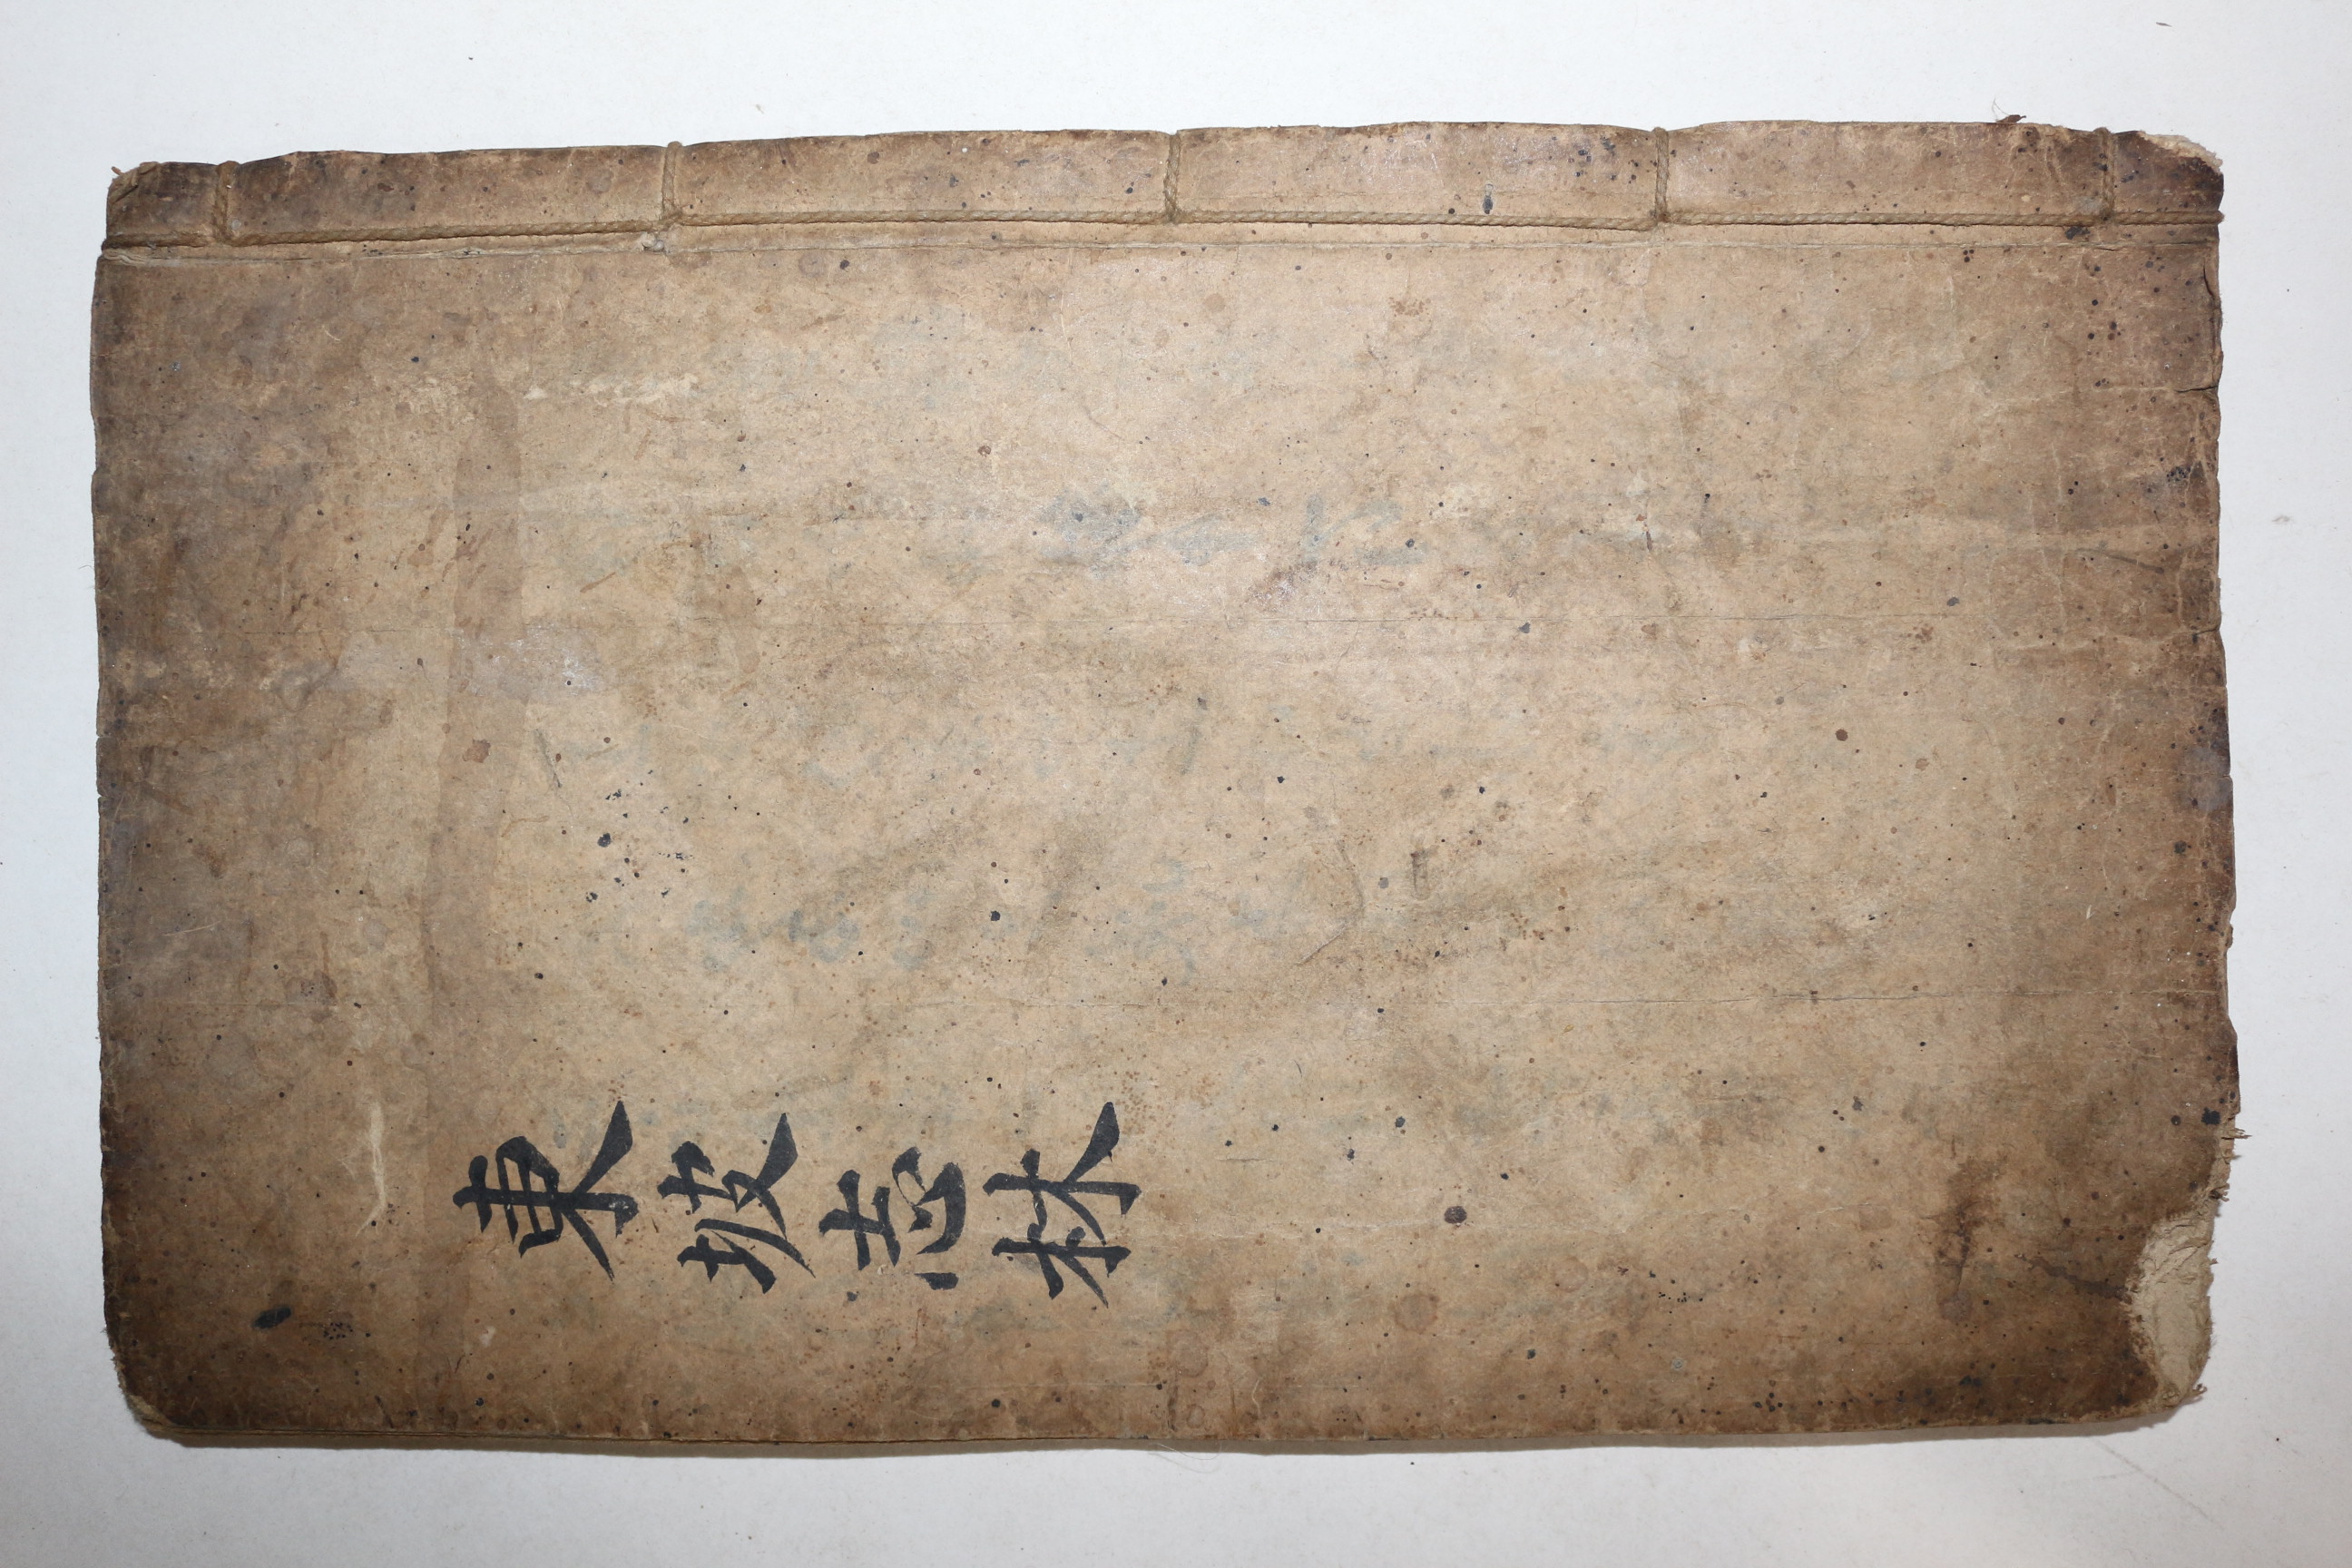 東坡志林